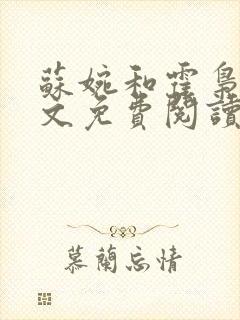 蘇婉和霆梟
文免費閱讀
慕蘭忘情